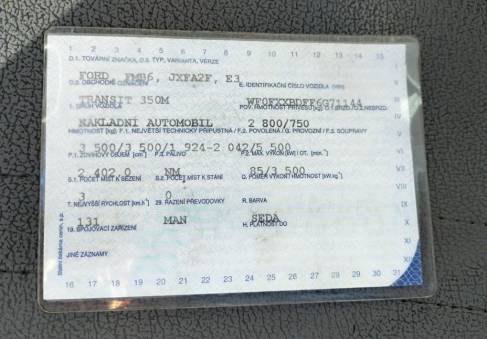 1 2 3 4 5 6 7 8 9 10 11 12 13 14 15
D.1. TOVÁRNÍ ZNAČKA, D.2. TYP, VARIANTA, VERZE
FORD FMB6, JXFA2F, E3
D.3. OBCHODNÍ OZNAČENÍ E. IDENTIFIKAČNÍ ČÍSLO VOZIDLA (VIN)
TRANSIT 350M WF0FXXBDFF6G71144
J. DRUH VOZIDLA POV. HMOTNOST PŘÍVĚSU [kg] O.1 BRZD./O.2 NEBRZD.
NÁKLADNÍ AUTOMOBIL 2 800/750
HMOTNOST [kg] F.1. NEJVĚTŠÍ TECHNICKY PŘÍPUSTNÁ / F.2. POVOLENÁ / G. PROVOZNÍ / F.3. SOUPRAVY
3 500/3 500/1 924-2 042/5 500
P.1. ZDVIHOVÝ OBJEM [cm³] P.3. PALIVO P.2. MAX. VÝKON [kW] / OT. [min⁻¹]
2 402,0 NM 85/3 500
S.1. POČET MÍST K SEZENÍ S.2. POČET MÍST K STÁNÍ Q. POMĚR VÝKON/HMOTNOST [kW.kg⁻¹]
3 0
T. NEJVYŠŠÍ RYCHLOST [km.h⁻¹] 29. ŘAZENÍ PŘEVODOVKY R. BARVA
131 MAN ŠEDÁ
SPOJOVACÍ ZAŘÍZENÍ H. PLATNOST DO
JINÉ ZÁZNAMY
16 17 18 19 20 21 22 23 24 25 26 27 28 29 30 31
Státní tiskárna cenin, s.p.
IV
V
VI
VII
VIII
IX
X
XI